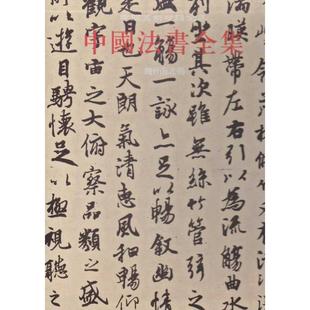 中國法書全集
湍暎帶左右引以為流觴曲水
列坐其次雖無絲竹管弦之
盛一觴一詠亦足以暢叙幽情
是日也天朗氣清惠風和暢仰
觀宇宙之大俯察品類之盛
以遊目騁懷足以極視聽之